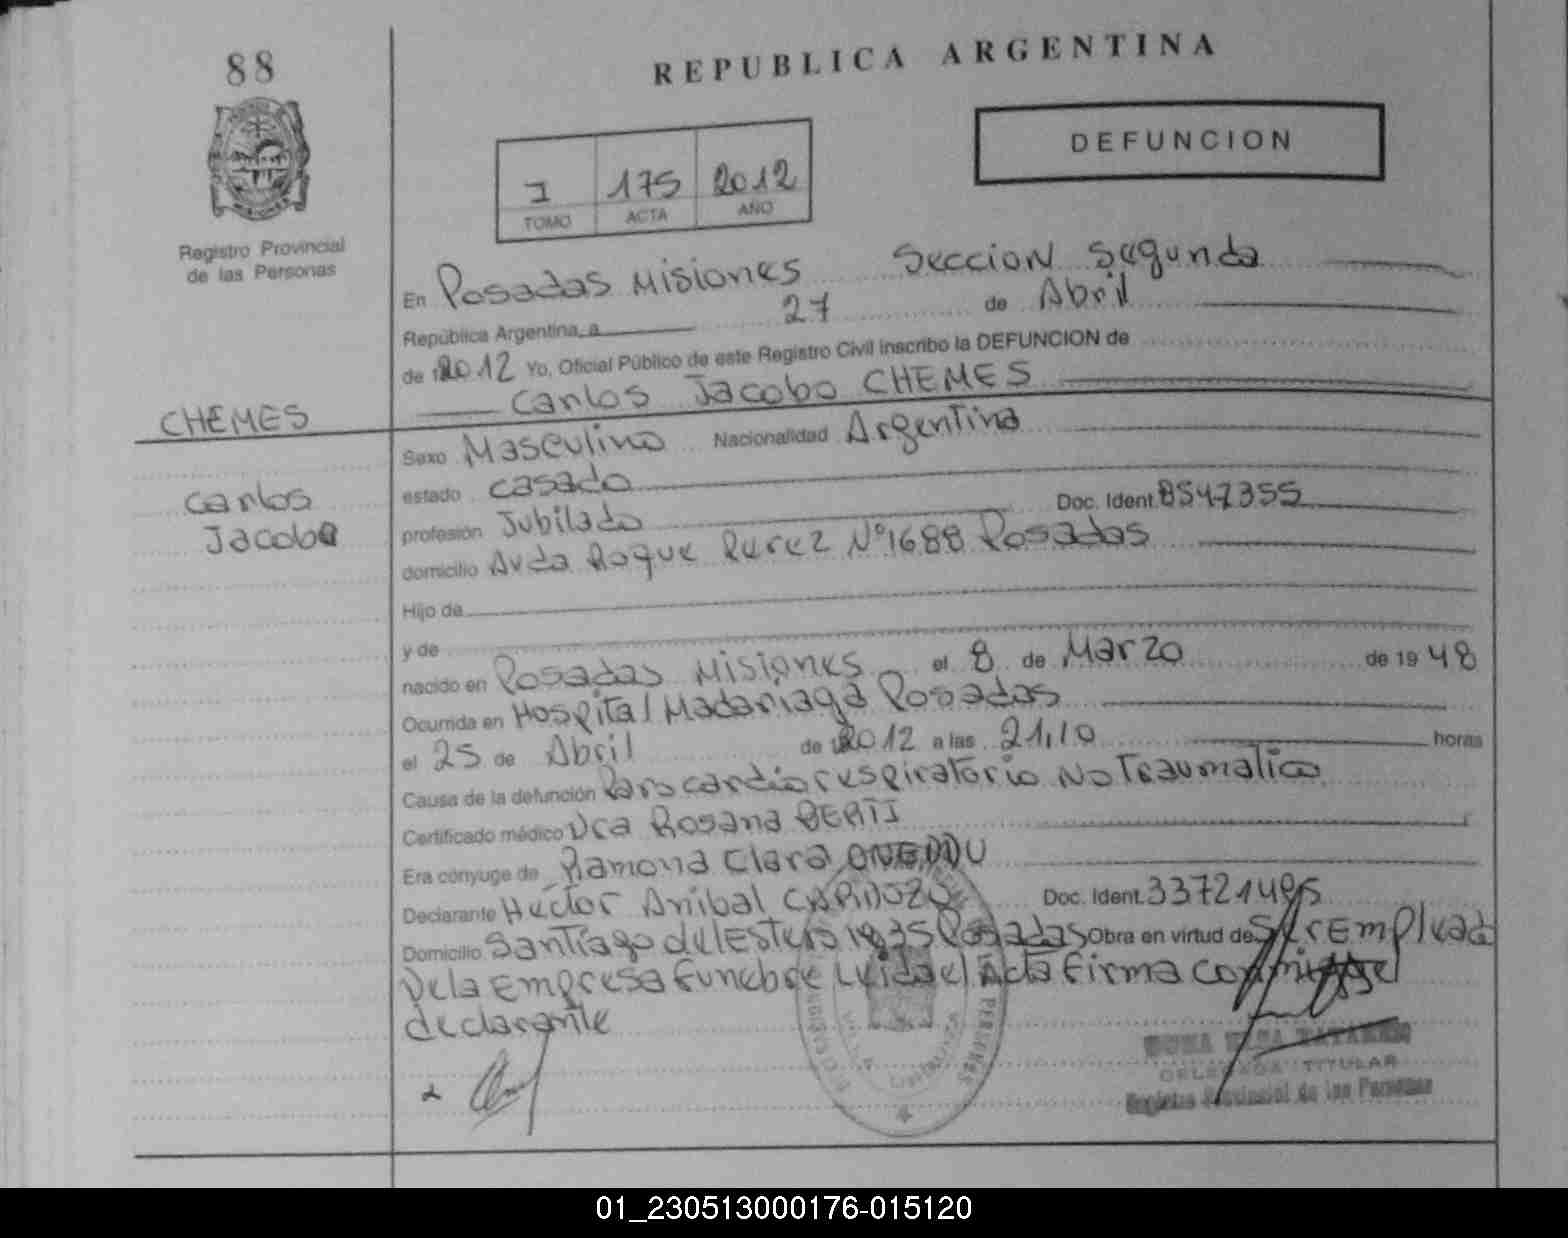 88
REPUBLICA ARGENTINA
DEFUNCION
I 175 2012
TOMO ACTA AÑO
Registro Provincial
de las Personas
En Posadas Misiones Seccion Segunda
República Argentina, a 27 de Abril
de 2012 Yo, Oficial Público de este Registro Civil inscribo la DEFUNCION de
Carlos Jacobo CHEMES
CHEMES
Carlos
Jacobo
Sexo Masculino Nacionalidad Argentina
estado casado
profesión Jubilado Doc. Ident. 8547355
domicilio Avda Roque Perez Nº1688 Posadas
Hijo de
y de
nacido en Posadas Misiones el 8 de Marzo de 1948
Ocurrida en Hospital Madariaga Posadas
el 25 de Abril de 2012 a las 21,10 horas
Causa de la defunción Paro cardio respiratorio No Traumatico
Certificado médico Dra Rosana
Era cónyuge de Ramona Clara
Declarante Hector Anibal CARDOZO Doc. Ident.
Domicilio Santiago del Estero 1935 Posadas Obra en virtud de Ser Empleado
De la Empresa Funebre Leida el Acta Firma el
declarante
TITULAR
Registro Provincial de las Personas
01_230513000176-015120